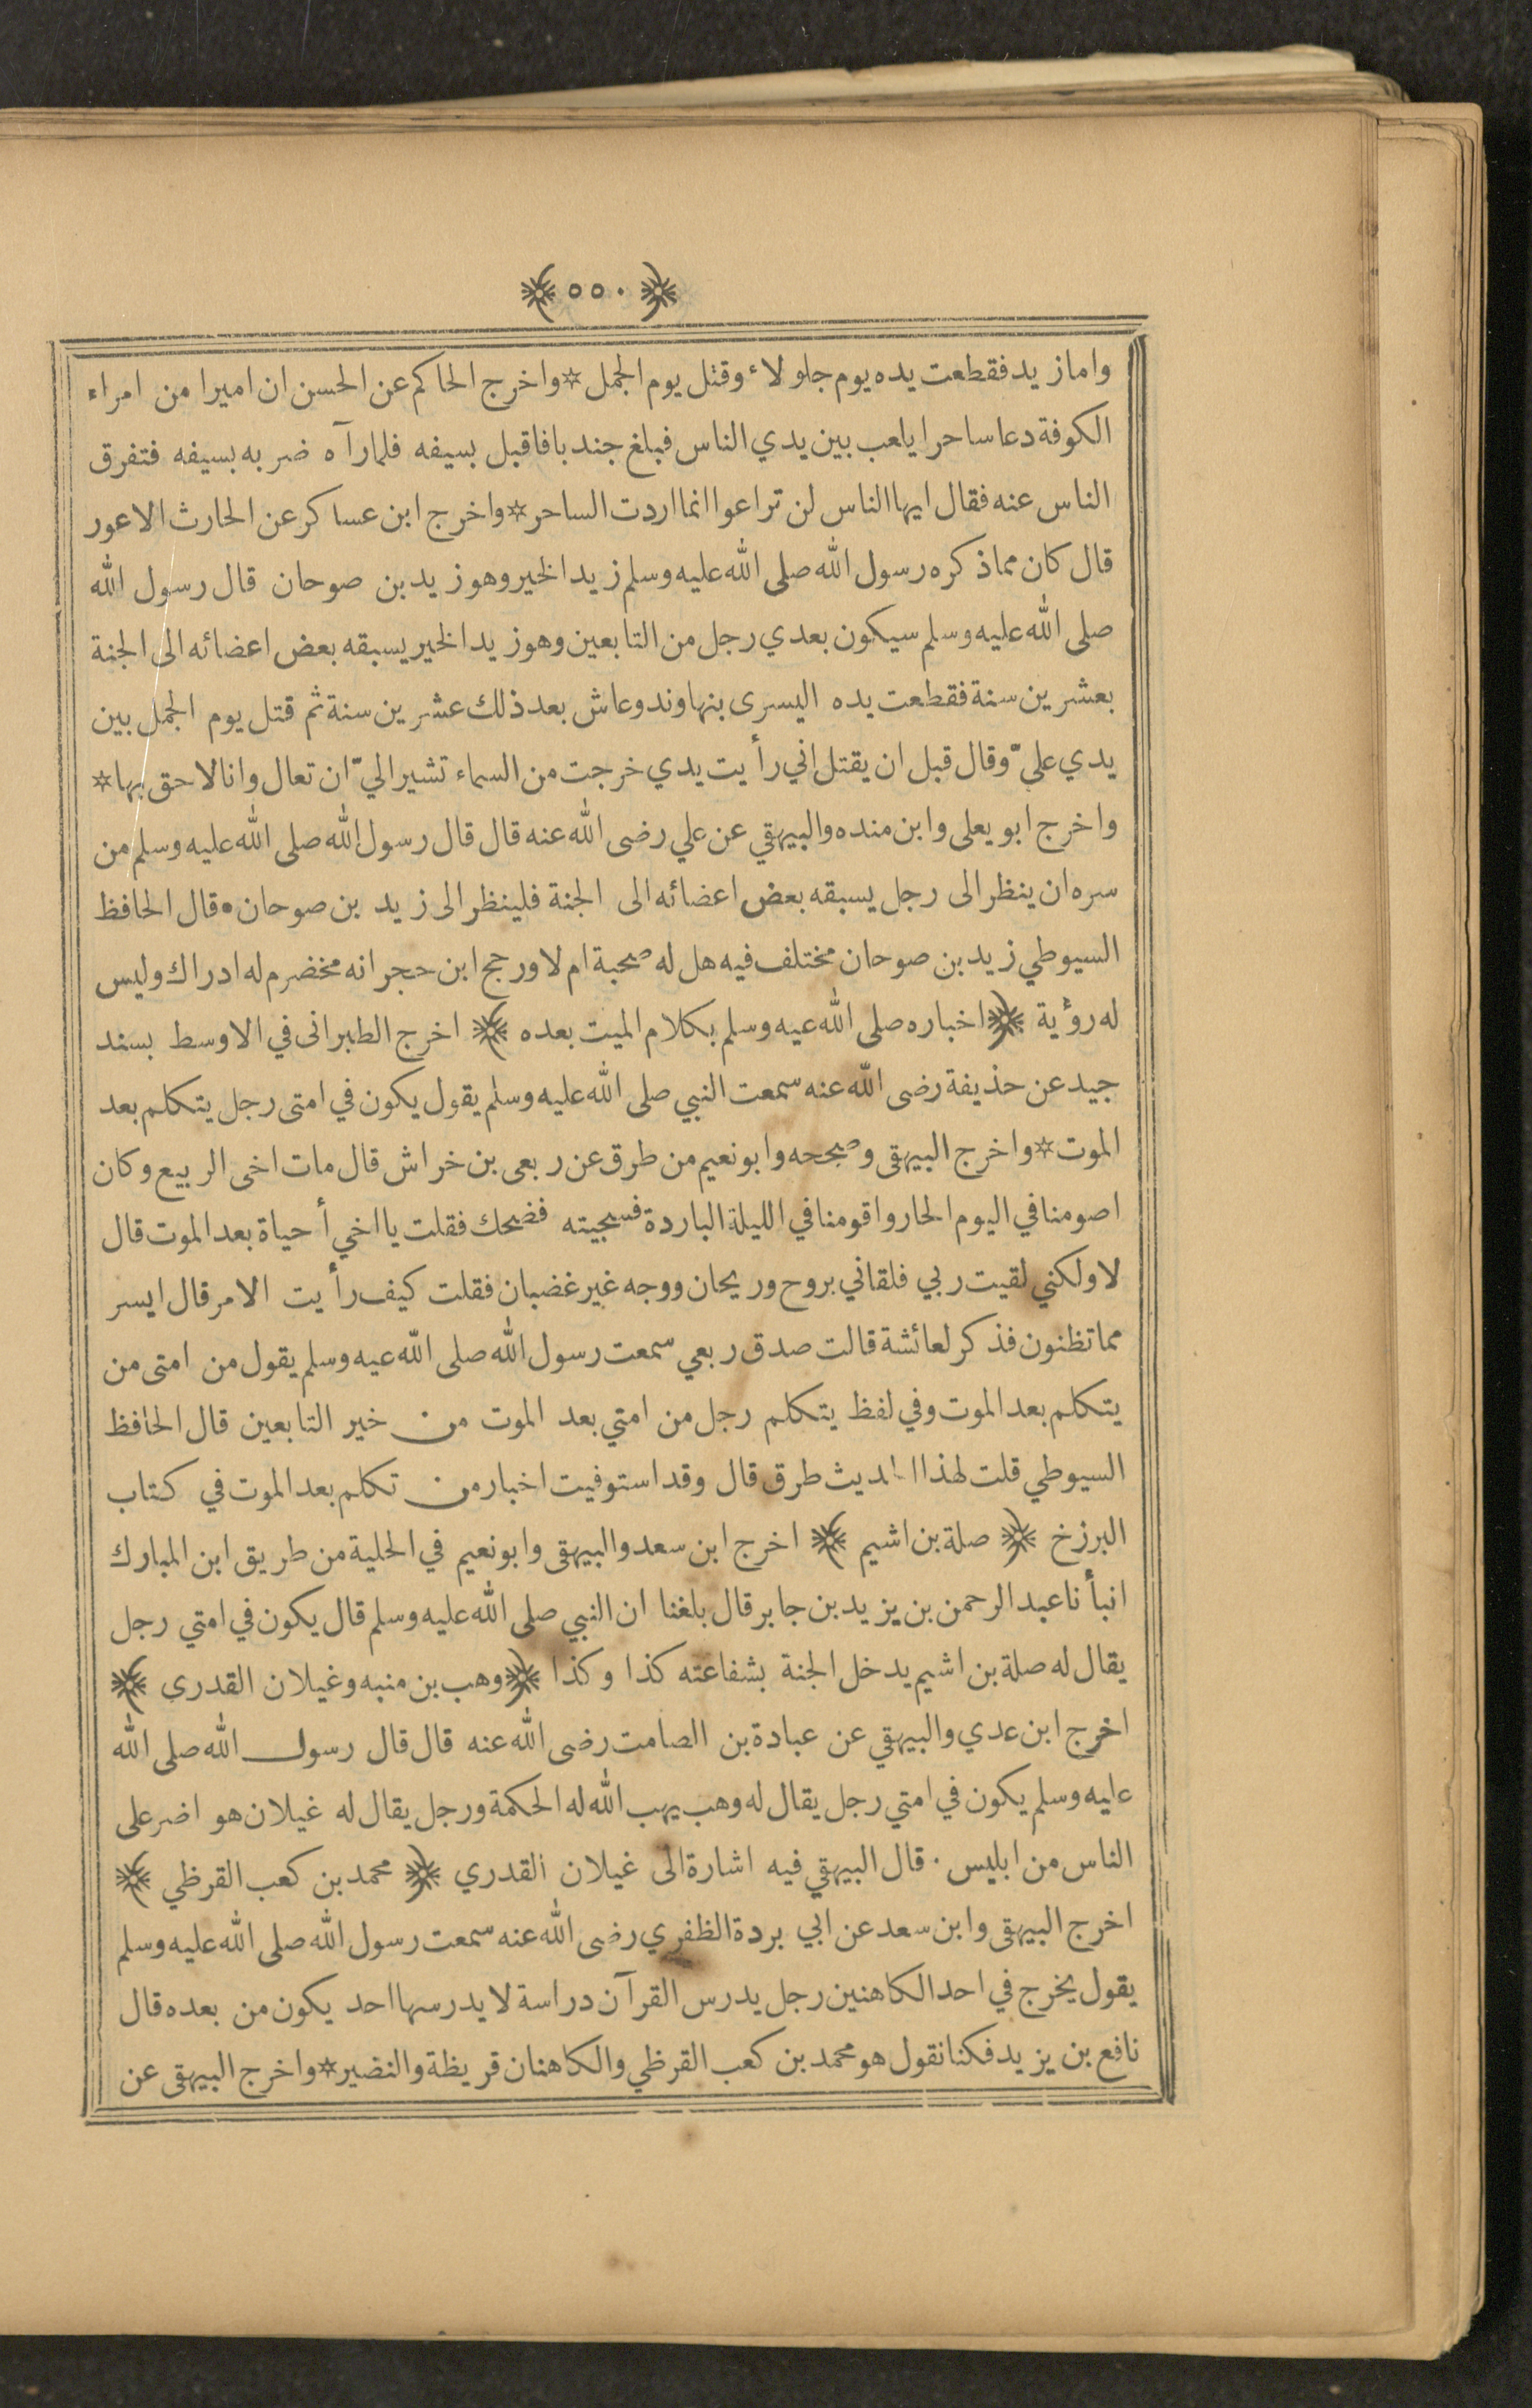 ﴿ ٥٥٠ ﴾
واما زيد فقطعت يده يوم جلولاء وقتل يوم الجمل * واخرج الحاكم عن الحسن ان اميرا من امراء
الكوفة دعا ساحرا يلعب بين يدي الناس فبلغ جندبا فاقبل بسيفه فلما رآه ضربه بسيفه فتفرق
الناس عنه فقال ايها الناس لن تراعوا انما اردت الساحر * واخرج ابن عساكر عن الحارث الاعور
قال كان مما ذكره رسول الله صلى الله عليه وسلم زيد الخير وهو زيد بن صوحان قال رسول الله
صلى الله عليه وسلم سيكون بعدي رجل من التابعين وهو زيد الخير يسبقه بعض اعضائه الى الجنة
بعشرين سنة فقطعت يده اليسرى بنهاوند وعاش بعد ذلك عشرين سنة ثم قتل يوم الجمل بين
يدي عليّ وقال قبل ان يقتل اني رأيت يدي خرجت من السماء تشير اليّ ان تعال وانا لاحق بها *
واخرج ابو يعلى وابن منده والبيهقي عن علي رضى الله عنه قال قال رسول الله صلى الله عليه وسلم من
سره ان ينظر الى رجل يسبقه بعض اعضائه الى الجنة فلينظر الى زيد بن صوحان • قال الحافظ
السيوطي زيد بن صوحان مختلف فيه هل له صحبة ام لا ورجح ابن حجر انه مخضرم له ادراك وليس
له رؤية ﴿ اخباره صلى الله عيه وسلم بكلام الميت بعده ﴾ اخرج الطبرانى في الاوسط بسند
جيد عن حذيفة رضى الله عنه سمعت النبي صلى الله عليه وسلم يقول يكون في امتى رجل يتكلم بعد
الموت * واخرج البيهقى وصححه وابو نعيم من طرق عن ربعى بن خراش قال مات اخى الربيع وكان
اصومنا في اليوم الحار واقومنا في الليلة الباردة فسجيته فضحك فقلت يا اخي أ حياة بعد الموت قال
لا ولكني لقيت ربي فلقاني بروح وريحان ووجه غير غضبان فقلت كيف رأيت الامر قال ايسر
مما تظنون فذكر لعائشة قالت صدق ربعي سمعت رسول الله صلى الله عيه وسلم يقول من امتى من
يتكلم بعد الموت وفي لفظ يتكلم رجل من امتي بعد الموت من خير التابعين قال الحافظ
السيوطي قلت لهذا الحديث طرق قال وقد استوفيت اخبار من تكلم بعد الموت في كتاب
البرزخ ﴿ صلة بن اشيم ﴾ اخرج ابن سعد والبيهقى وابو نعيم في الحلية من طريق ابن المبارك
انبأنا عبد الرحمن بن يزيد بن جابر قال بلغنا ان النبي صلى الله عليه وسلم قال يكون في امتي رجل
يقال له صلة بن اشيم يدخل الجنة بشفاعته كذا وكذا ﴿ وهب بن منبه وغيلان القدرى ﴾
اخرج ابن عدي والبيهقي عن عبادة بن الصامت رضى الله عنه قال قال رسول الله صلى الله
عليه وسلم يكون في امتي رجل يقال له وهب يهب الله له الحكمة ورجل يقال له غيلان هو اضر على
الناس من ابليس · قال البيهقي فيه اشارة الى غيلان القدري ﴿ محمد بن كعب القرظي ﴾
اخرج البيهقى وابن سعد عن ابي بردة الظفري رضى الله عنه سمعت رسول الله صلى الله عليه وسلم
يقول يخرج في احد الكاهنين رجل يدرس القرآن دراسة لا يدرسها احد يكون من بعده قال
نافع بن يزيد فكنا نقول هو محمد بن كعب القرظي والكاهنان قريظة والنضير * واخرج البيهقى عن